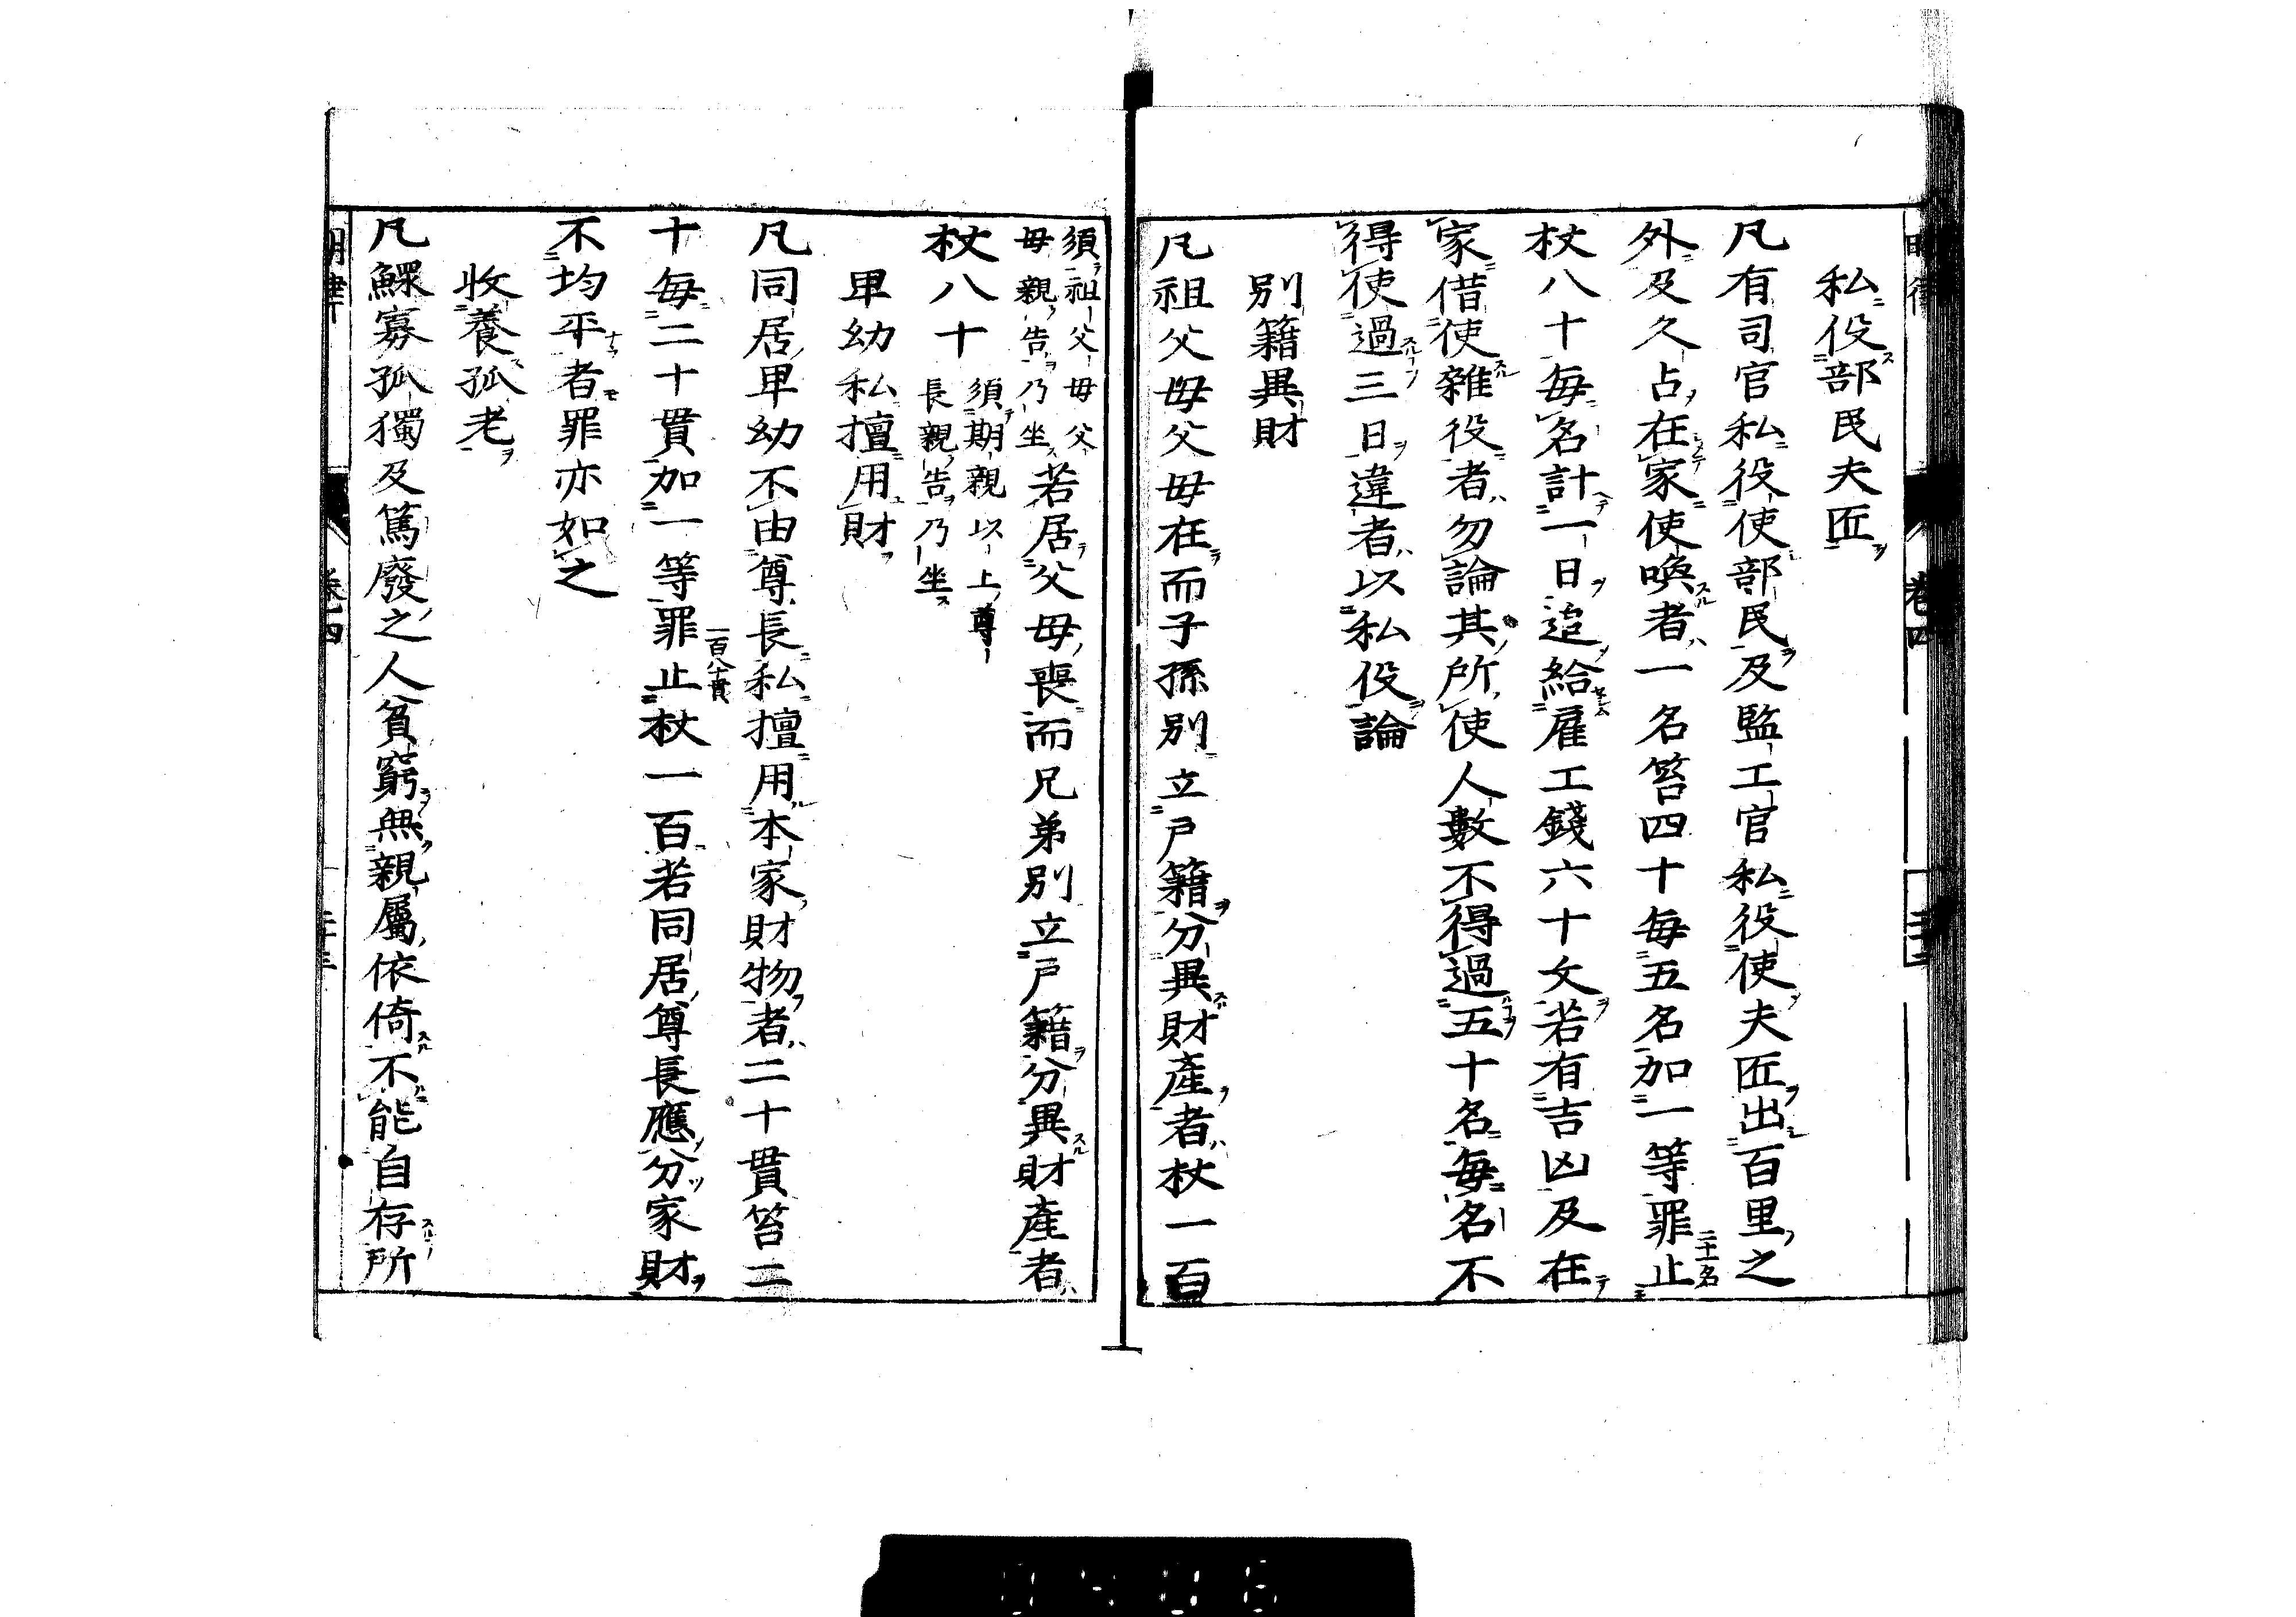 私役部民夫匠
凡有司官私役使部民及監工官私役使夫匠出百里之
外及久占在家使喚者一名笞四十每五名加一等罪止二十一名
杖八十每名計一日追給雇工錢六十文若有吉凶及在
家借使雜役者勿論其所使人數不得過五十名每名不
得使過三日違者以私役論
別籍異財
凡祖父母父母在而子孫別立戶籍分異財產者杖一百
須祖父母父
母親告乃坐若居父母喪而兄弟別立戶籍分異財產者
杖八十須期親以上尊
長親告乃坐
卑幼私擅用財
凡同居卑幼不由尊長私擅用本家財物者二十貫笞二
十每二十貫加一等罪止一百八十貫杖一百若同居尊長應分家財
不均平者罪亦如之
收養孤老
凡鰥寡孤獨及篤廢之人貧窮無親屬依倚不能自存所
明律
卷四